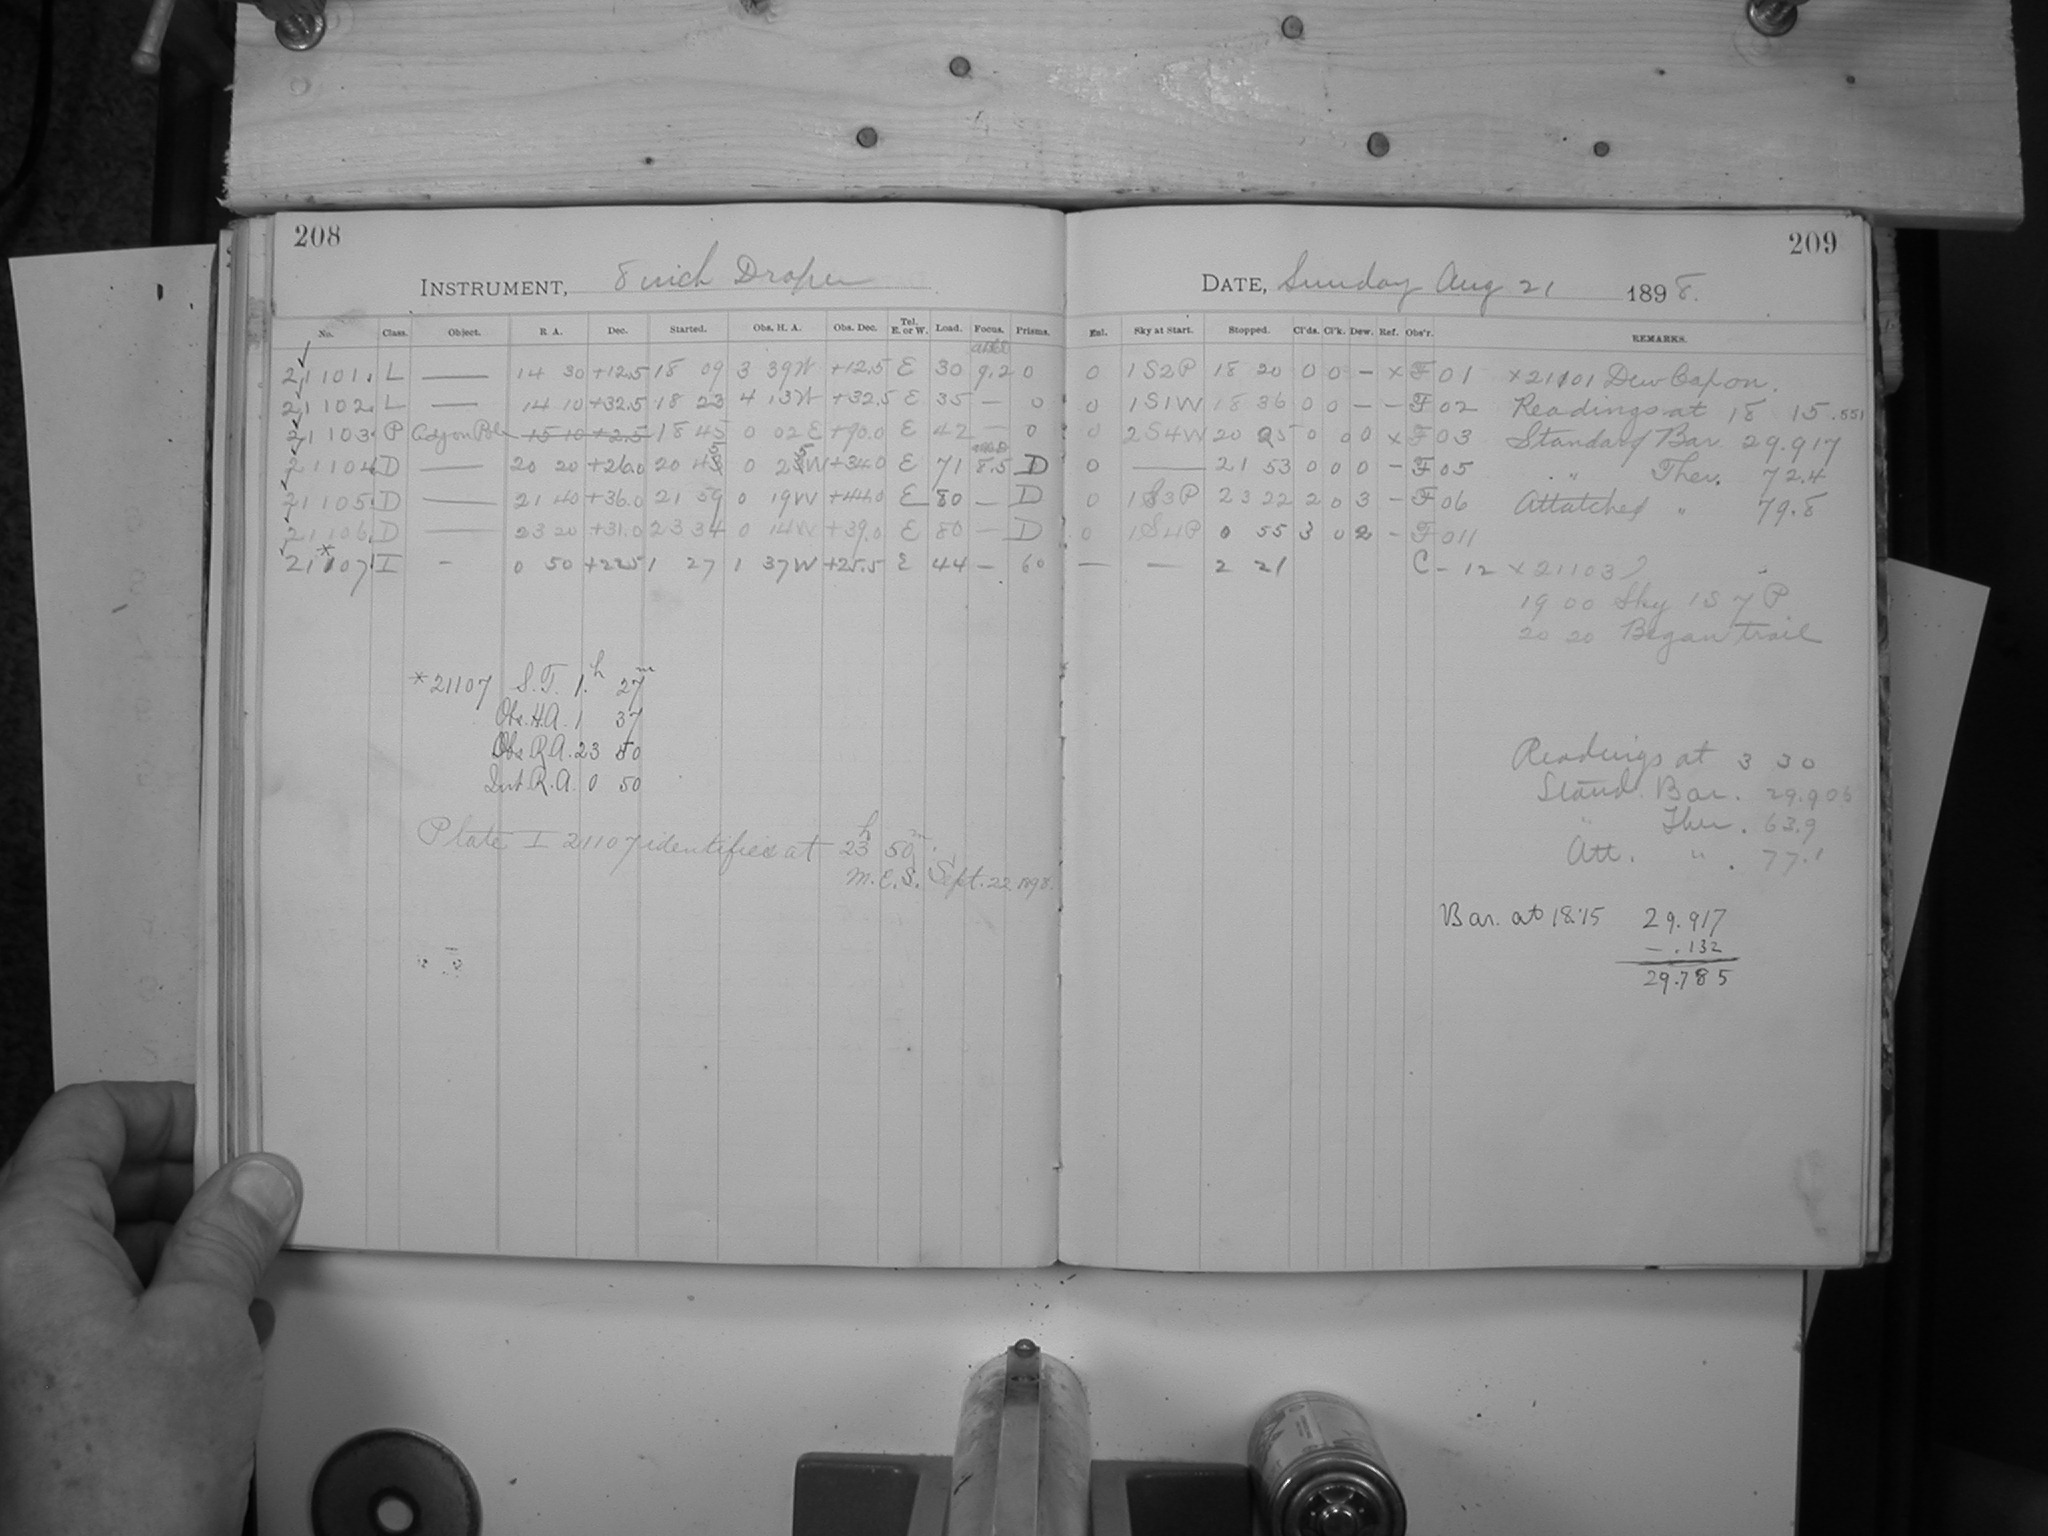 208
209
INSTRUMENT, 8 inch Draper
DATE, Sunday Aug 21 1898.
No. Class. Object. R A. Dec. Started. Obs. H. A. Obs. Dec. Tel. E. or W. Load. Focus. Prisms.
Enl. Sky at Start. Stopped. Cl'ds. Cl'k. Dew. Ref. Obs'r. REMARKS.
21101. L — 14 30 +12.5 18 09 3 39W +12.5 E 30 9.2 0
0 1S2P 18 20 0 0 - x F 01 x21101 Dew Cap on.
21102. L — 14 10 +32.5 18 23 4 13W +32.5 E 35 — 0
0 1S1W 18 36 0 0 - - F 02 Readings at 18 15 .551
21103. P Adj on Pole 15 10 +2.5 18 45 0 02 E +90.0 E 42 — 0
0 2S4W 20 25 0 0 0 x F 03 Standard Bar 29.917
21104. D — 20 20 +26.0 20 45 0 25W +34.0 E 71 8.5 D
0 — 21 53 0 0 0 - F 05 " Ther. 72.4
21105. D — 21 40 +36.0 21 59 0 19W +44.0 E 80 — D
0 1S3P 23 22 2 0 3 - F 06 Attatched " 79.8
21106. D — 23 20 +31.0 23 34 0 14W +39.0 E 80 — D
0 1S4P 0 55 3 0 2 - F 011
21*107. I - 0 50 +22.5 1 27 1 37W +25.5 E 44 — 60
— — 2 21 C - 12 x21103)
19 00 Sky 1S7P
20 20 Began trail
*21107 S.T. 1h 27m
Obs. H.A. 1 37
Obs R.A. 23 50
Int R.A. 0 50
Plate I 21107 identified at 23h 50m.
M.E.S. Sept. 22 1898.
Readings at 3 30
Stand. Bar. 29.906
" Ther. 63.9
Att. " . 77.1
Bar. at 18:15 29.917
- .132
29.785